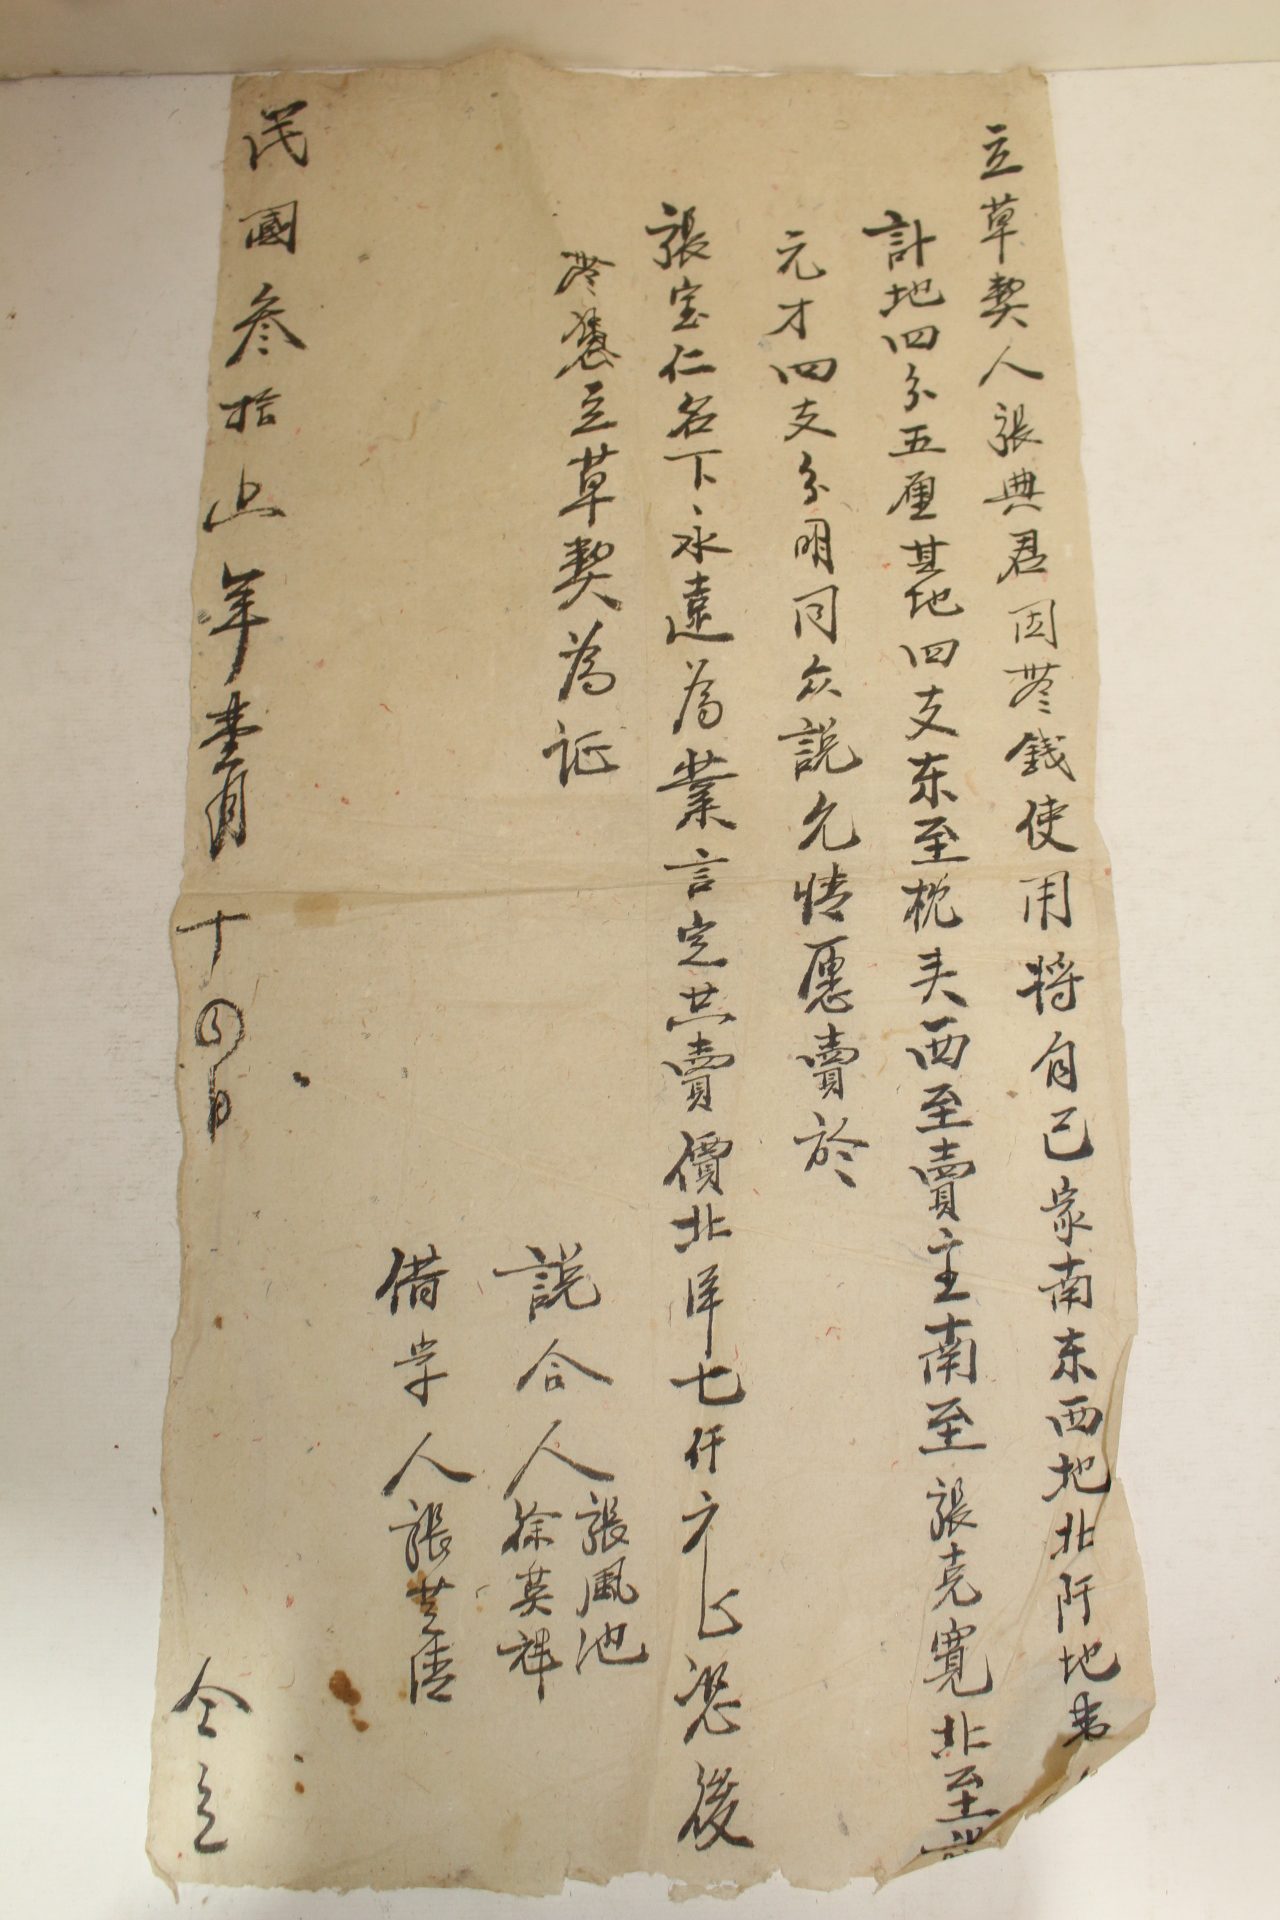 立草契人張典君因無錢使用將自己家南东西地北阡地
計地四分五厘其地四支东至枕夫西至賣主南至張克寬北至
元才四支分明同众說允情愿賣於
張宝仁名下永遠為業言定共賣價北洋七仟元正恐後
無憑立草契為证
說合人張風池
徐英祥
借字人張芝清
民國叁拾止年壹月十四日
仝立